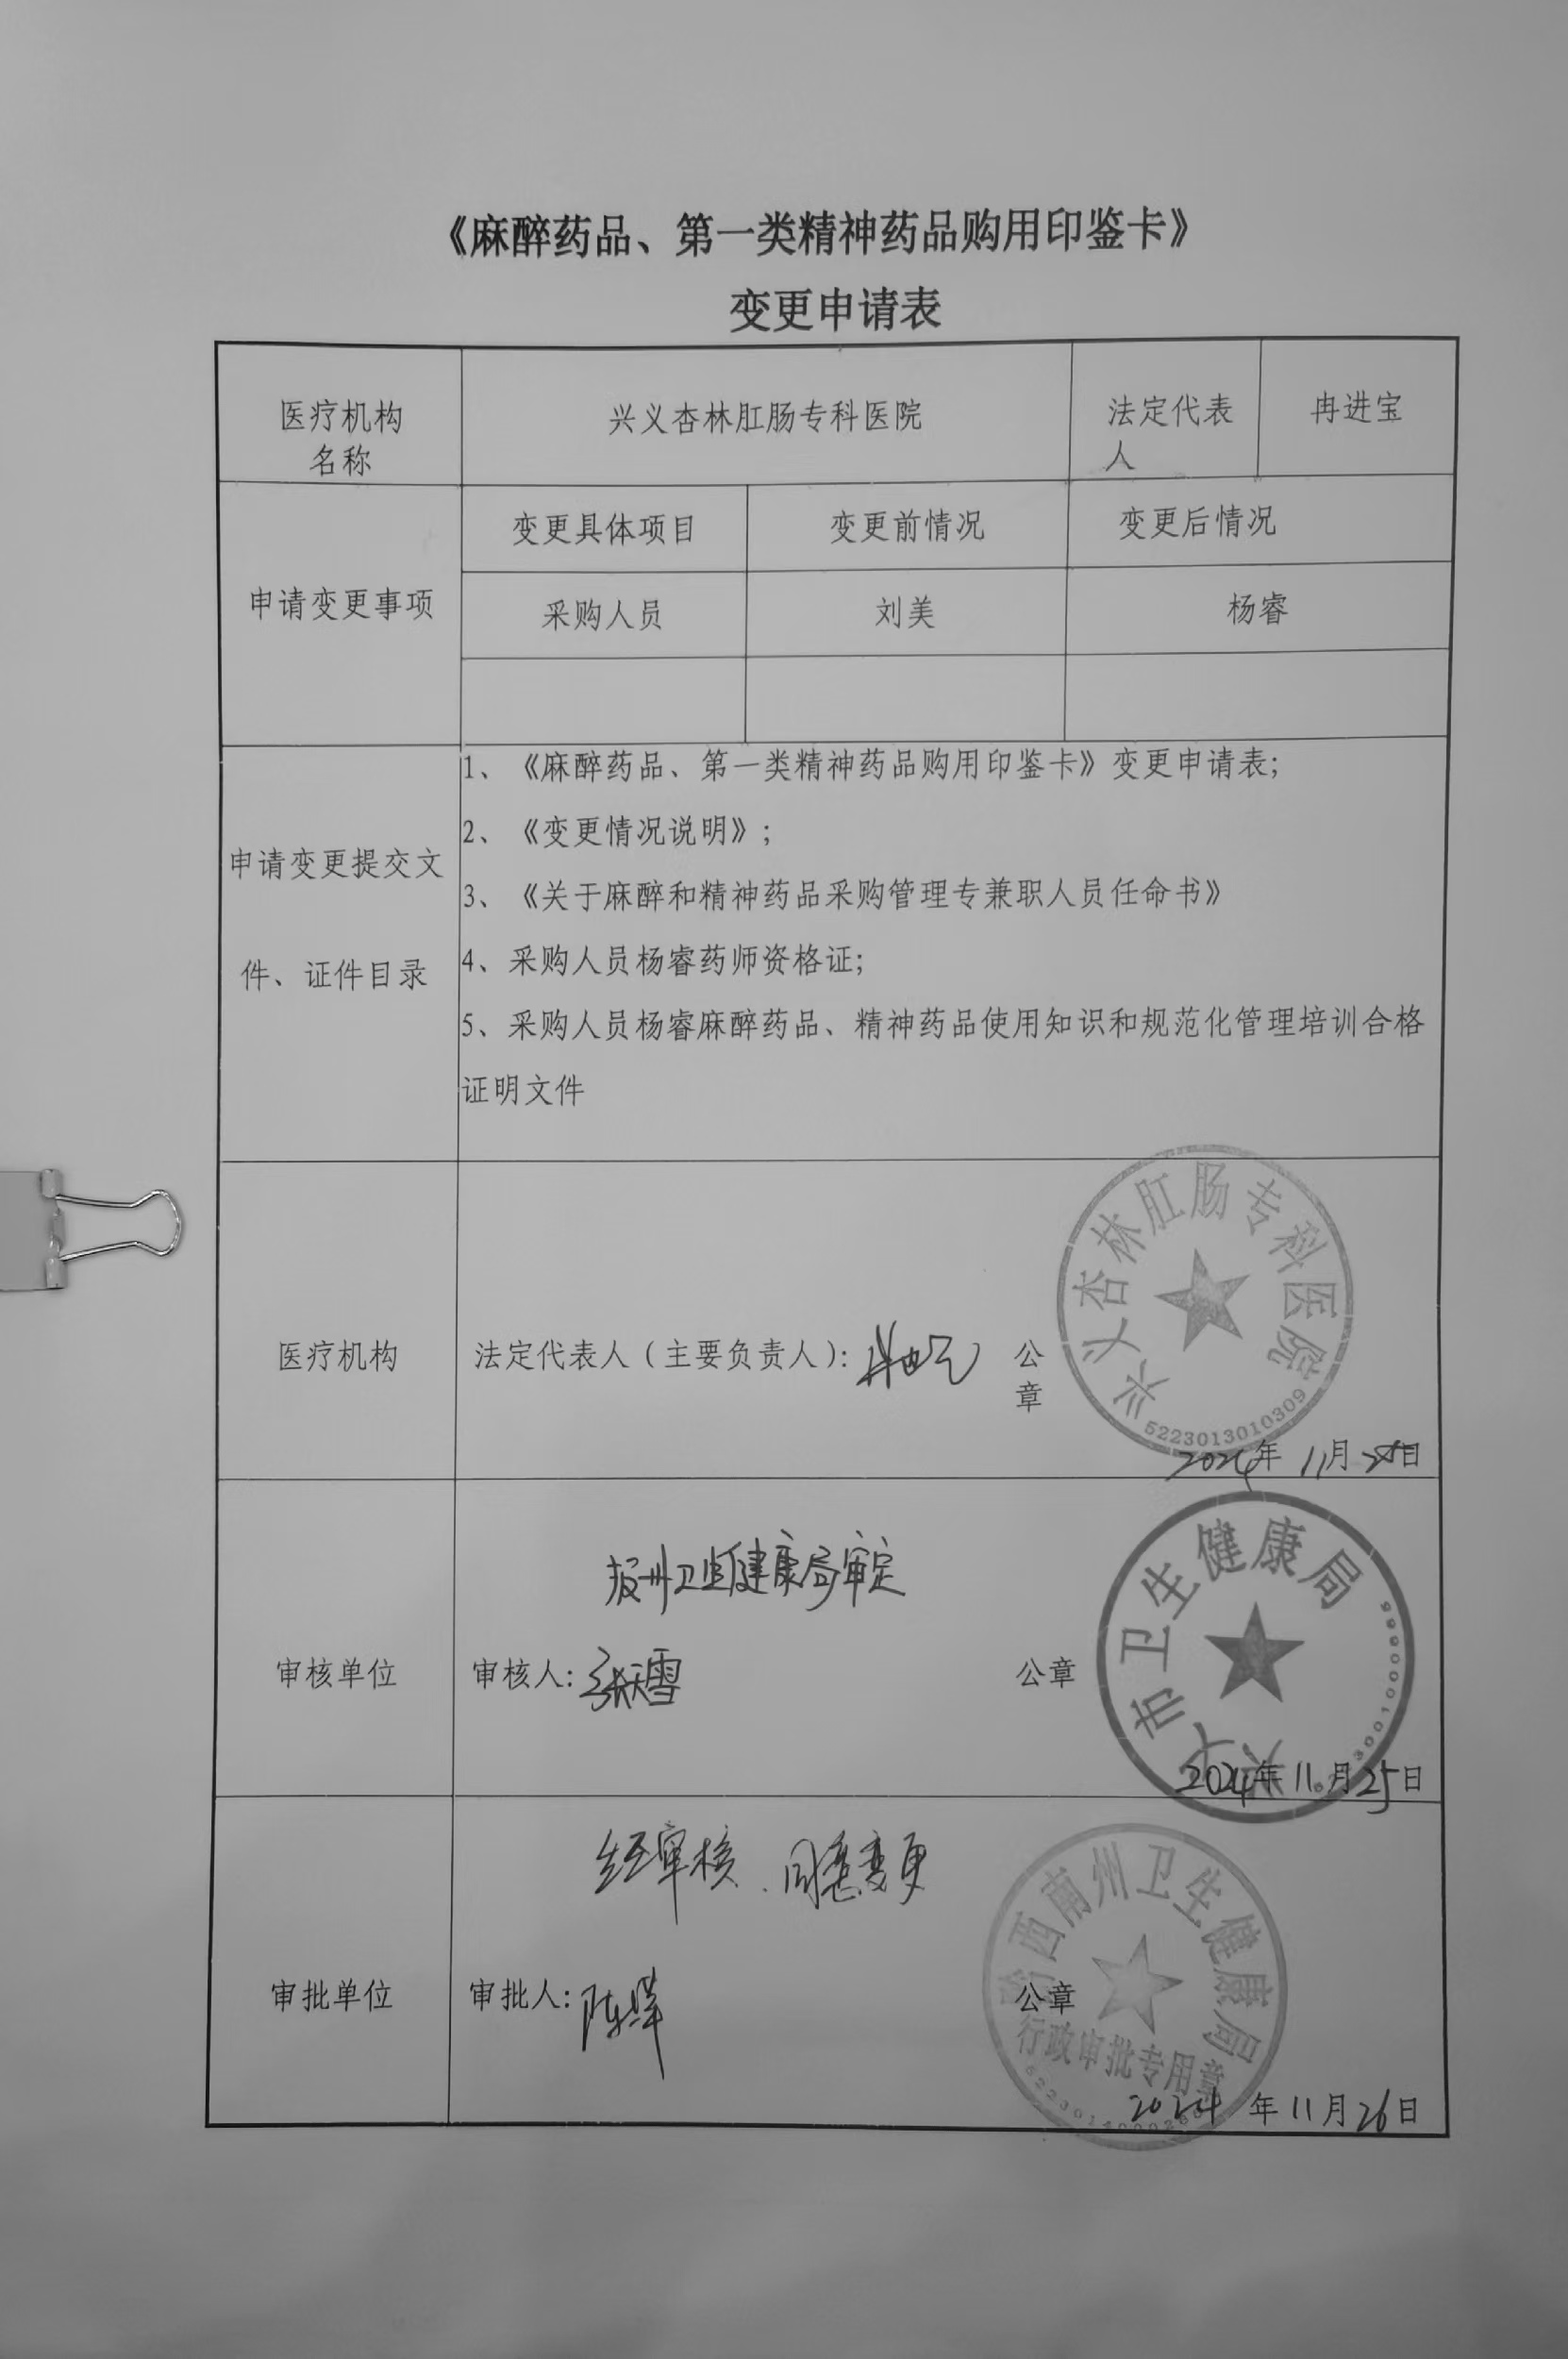 《麻醉药品、第一类精神药品购用印鉴卡》
变更申请表
医疗机构
名称
兴义杏林肛肠专科医院
法定代表
人
冉进宝
申请变更事项
变更具体项目
变更前情况
变更后情况
采购人员
刘美
杨睿
申请变更提交文
件、证件目录
1、《麻醉药品、第一类精神药品购用印鉴卡》变更申请表;
2、《变更情况说明》;
3、《关于麻醉和精神药品采购管理专兼职人员任命书》
4、采购人员杨睿药师资格证;
5、采购人员杨睿麻醉药品、精神药品使用知识和规范化管理培训合格
证明文件
医疗机构
法定代表人（主要负责人）:
公
章
兴义杏林肛肠专科医院
5223013010309
2024年 11月 日
审核单位
报州卫生健康局审定
审核人:
公章
兴义市卫生健康局
2024年11月25日
审批单位
经审核、同意变更
审批人:
公章
黔西南州卫生健康局
行政审批专用章
2024年11月26日